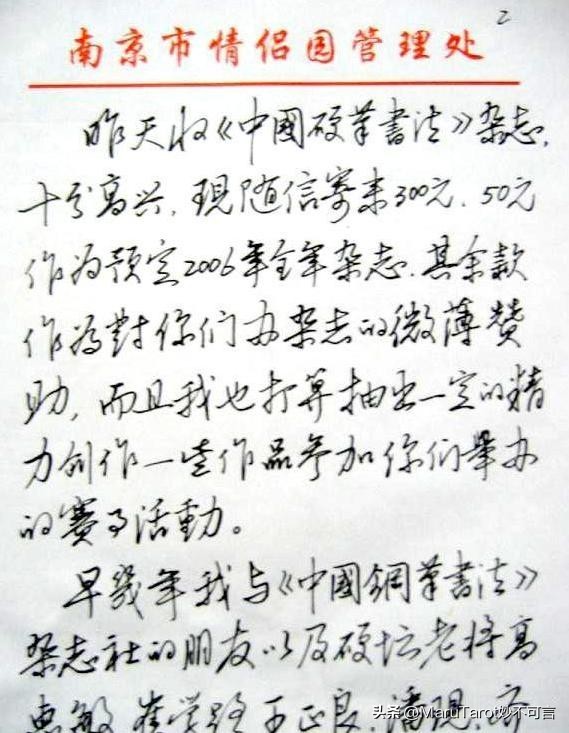 2
南京市情侣园管理处
昨天收《中國硬筆書法》杂志,
十分高兴,現随信寄来300元,50元
作为预定2006年全年杂志,其余款
作為對你们办杂志的微薄赞
助,而且我也打算抽出一定的精
力创作一些作品参加你们舉办
的賽事活動。
早幾年我与《中國鋼筆書法》
杂志社的朋友以及硬坛老将高
惠敏 崔学路 王正良,潘现,
头条 @MaruTarot妙不可言